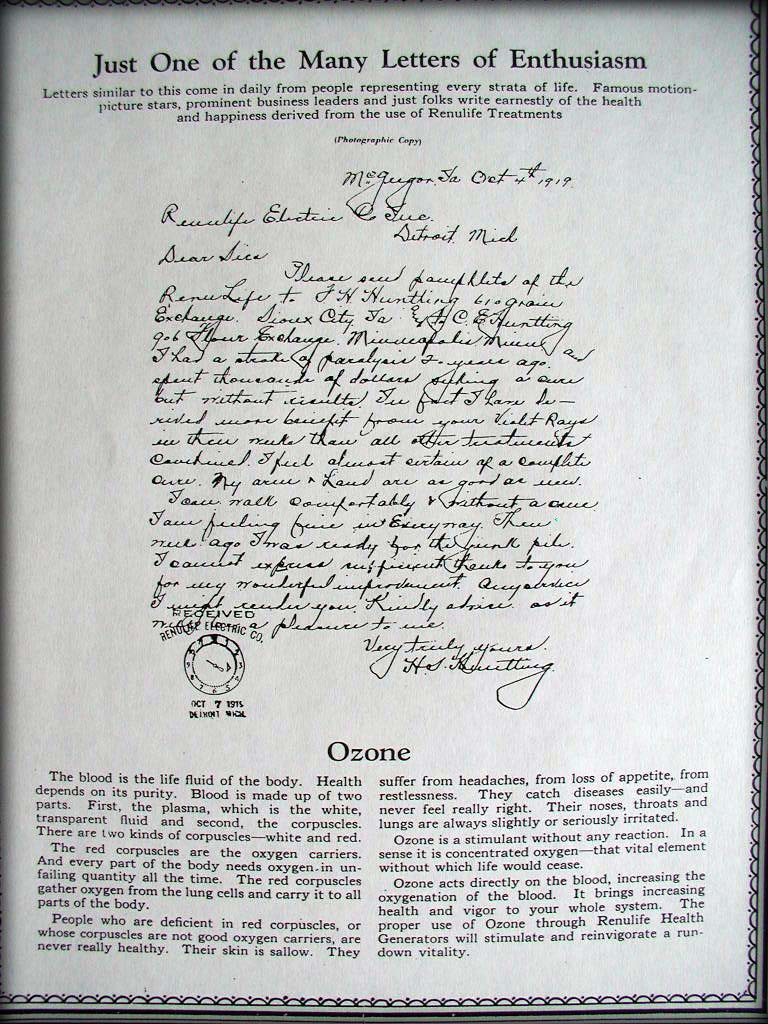 Just One of the Many Letters of Enthusiasm
Letters similar to this come in daily from people representing every strata of life. Famous motion-
picture stars, prominent business leaders and just folks write earnestly of the health
and happiness derived from the use of Renulife Treatments
(Photographic Copy)
McGregor, Ia Oct 4th 1919.
Renulife Electric Co Inc.
Detroit Mich
Dear Sirs
Please send pamphlets of the
RenuLife to F H Huntting 610 Grain
Exchange. Sioux City Ia & to C. E. Huntting
906 Flour Exchange. Minneapolis Minn
I had a stroke of paralysis 2 years ago. and
spent thousands of dollars seeking a cure
but without results In fact I have de-
rived more benefit from your Violet Rays
in three weeks than all other treatments
combined. I feel almost certain of a complete
cure. My arm & hand are as good as new.
I can walk comfortably & without a cane.
I am feeling fine in Every way. Three
weeks ago I was ready for the junk pile.
I cannot express sufficient thanks to you
for my wonderful improvement. Any service
I might render you. Kindly advise as it
will be a pleasure to me.
Very truly yours.
H. S. Huntting.
RECEIVED
RENULIFE ELECTRIC CO.
OCT 7 1919
DETROIT MICH.
Ozone
The blood is the life fluid of the body. Health
depends on its purity. Blood is made up of two
parts. First, the plasma, which is the white,
transparent fluid and second, the corpuscles.
There are two kinds of corpuscles—white and red.
The red corpuscles are the oxygen carriers.
And every part of the body needs oxygen in un-
failing quantity all the time. The red corpuscles
gather oxygen from the lung cells and carry it to all
parts of the body.
People who are deficient in red corpuscles, or
whose corpuscles are not good oxygen carriers, are
never really healthy. Their skin is sallow. They
suffer from headaches, from loss of appetite, from
restlessness. They catch diseases easily—and
never feel really right. Their noses, throats and
lungs are always slightly or seriously irritated.
Ozone is a stimulant without any reaction. In a
sense it is concentrated oxygen—that vital element
without which life would cease.
Ozone acts directly on the blood, increasing the
oxygenation of the blood. It brings increasing
health and vigor to your whole system. The
proper use of Ozone through Renulife Health
Generators will stimulate and reinvigorate a run-
down vitality.